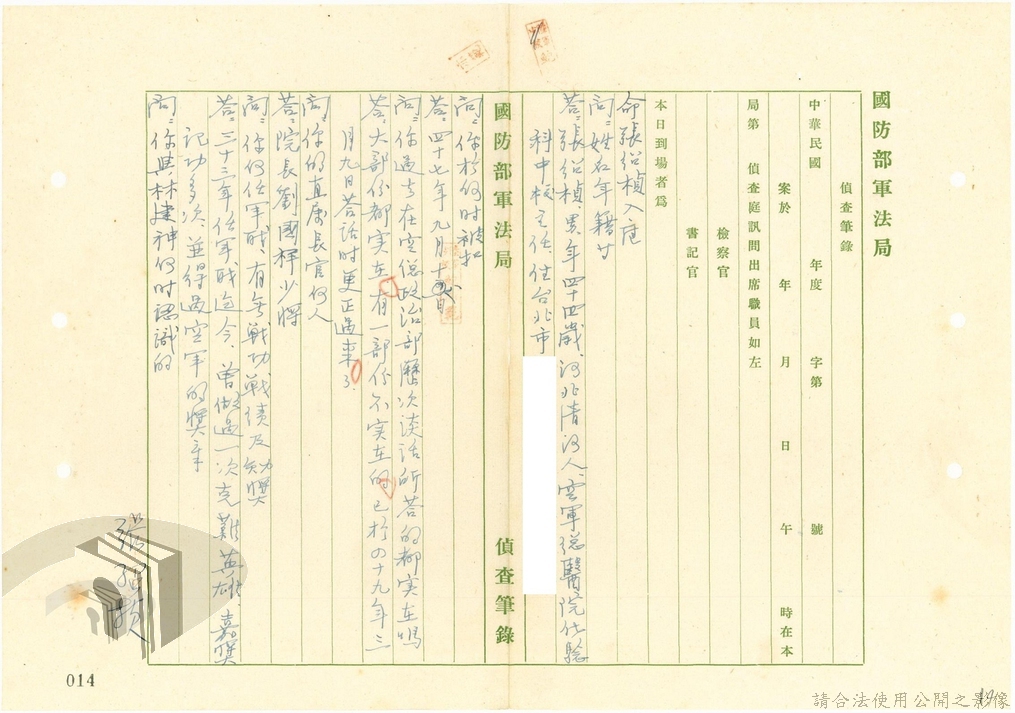 國防部軍法局
偵查筆錄
中華民國　年度　字第　號
案於　年　月　日　午　時在本
局第　偵查庭訊問出席職員如左
檢察官
書記官
本日到場者爲
命張紹楨入庭
問：姓名年籍等
答：張紹楨、男、年四十四歲、河北清河人、空軍總醫院化驗
科中校主任、住台北市
國防部軍法局　偵查筆錄
問：你於何時被扣
答：四十七年九月十　日
問：你過去在空總政治部歷次談話所答的都实在嗎
答：大部份都实在、有一部份不实在的已於四十九年三
月九日答話時更正過來了、
問：你的直屬長官何人
答：院長劉國禪少將
問：你何任軍职、有無戰功、戰績及　獎
答：三十三年任軍职迄今、曾做過一次克難英雄、嘉獎
記功多次、並得過空軍的獎章
問：你與林建神何时認識的
張紹楨
014
請合法使用公開之影像